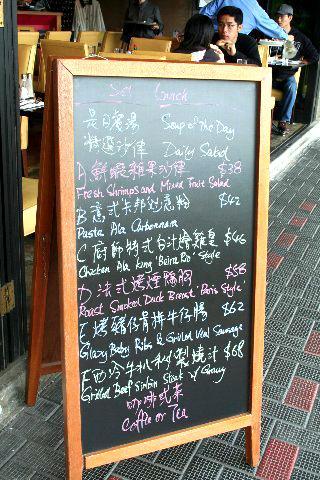 Set Lunch
是日餐湯 Soup of The Day
精選沙律 Daily Salad
A 鮮蝦雜果沙律 $38
Fresh Shrimps and Mixed Fruit Salad
B 意式卡邦尼意粉 $42
Pasta Ala Carbonara
C 廚師特式白汁燴雞皇 $46
Chicken Ala King 'Beira Rio' Style
D 法式烤煙鴨胸 $58
Roast Smoked Duck Breast 'Paris Style'
E 烤豬仔骨拼牛仔腸 $62
Glazy Baby Ribs & Grilled Veal Sausage
F 西冷牛扒 秘製燒汁 $68
Grilled Beef Sirloin Steak w/ Gravy
咖啡或茶
Coffee or Tea